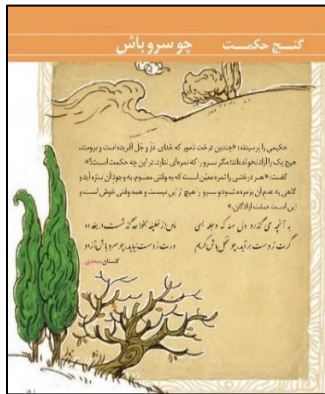 گنج حکمت چو سرو باش
حکیمی را پرسیدند: «چندین درخت نامور که خدای عَزَّ و جَلّ آفریده است و برومند،
هیچ یک را آزاد نخوانده‌اند؛ مگر سرو را که ثمره‌ای ندارد. در این چه حکمت است؟»
گفت: «هر درختی را ثمره معیّن است که به وقتی معلوم، به وجود آن تازه آید و
گاهی به عدم آن پژمرده شود و سرو را هیچ از این نیست و همه وقتی خوش است و
این است صفت آزادگان.»
به آنچه می گذرد دل منه که دجله بسی پس از خلیفه بخواهد گذشت در بغداد
گرت ز دست برآید، چو نخل باش کریم ورت ز دست نیاید، چو سرو باش آزاد
گلستان، سعدی